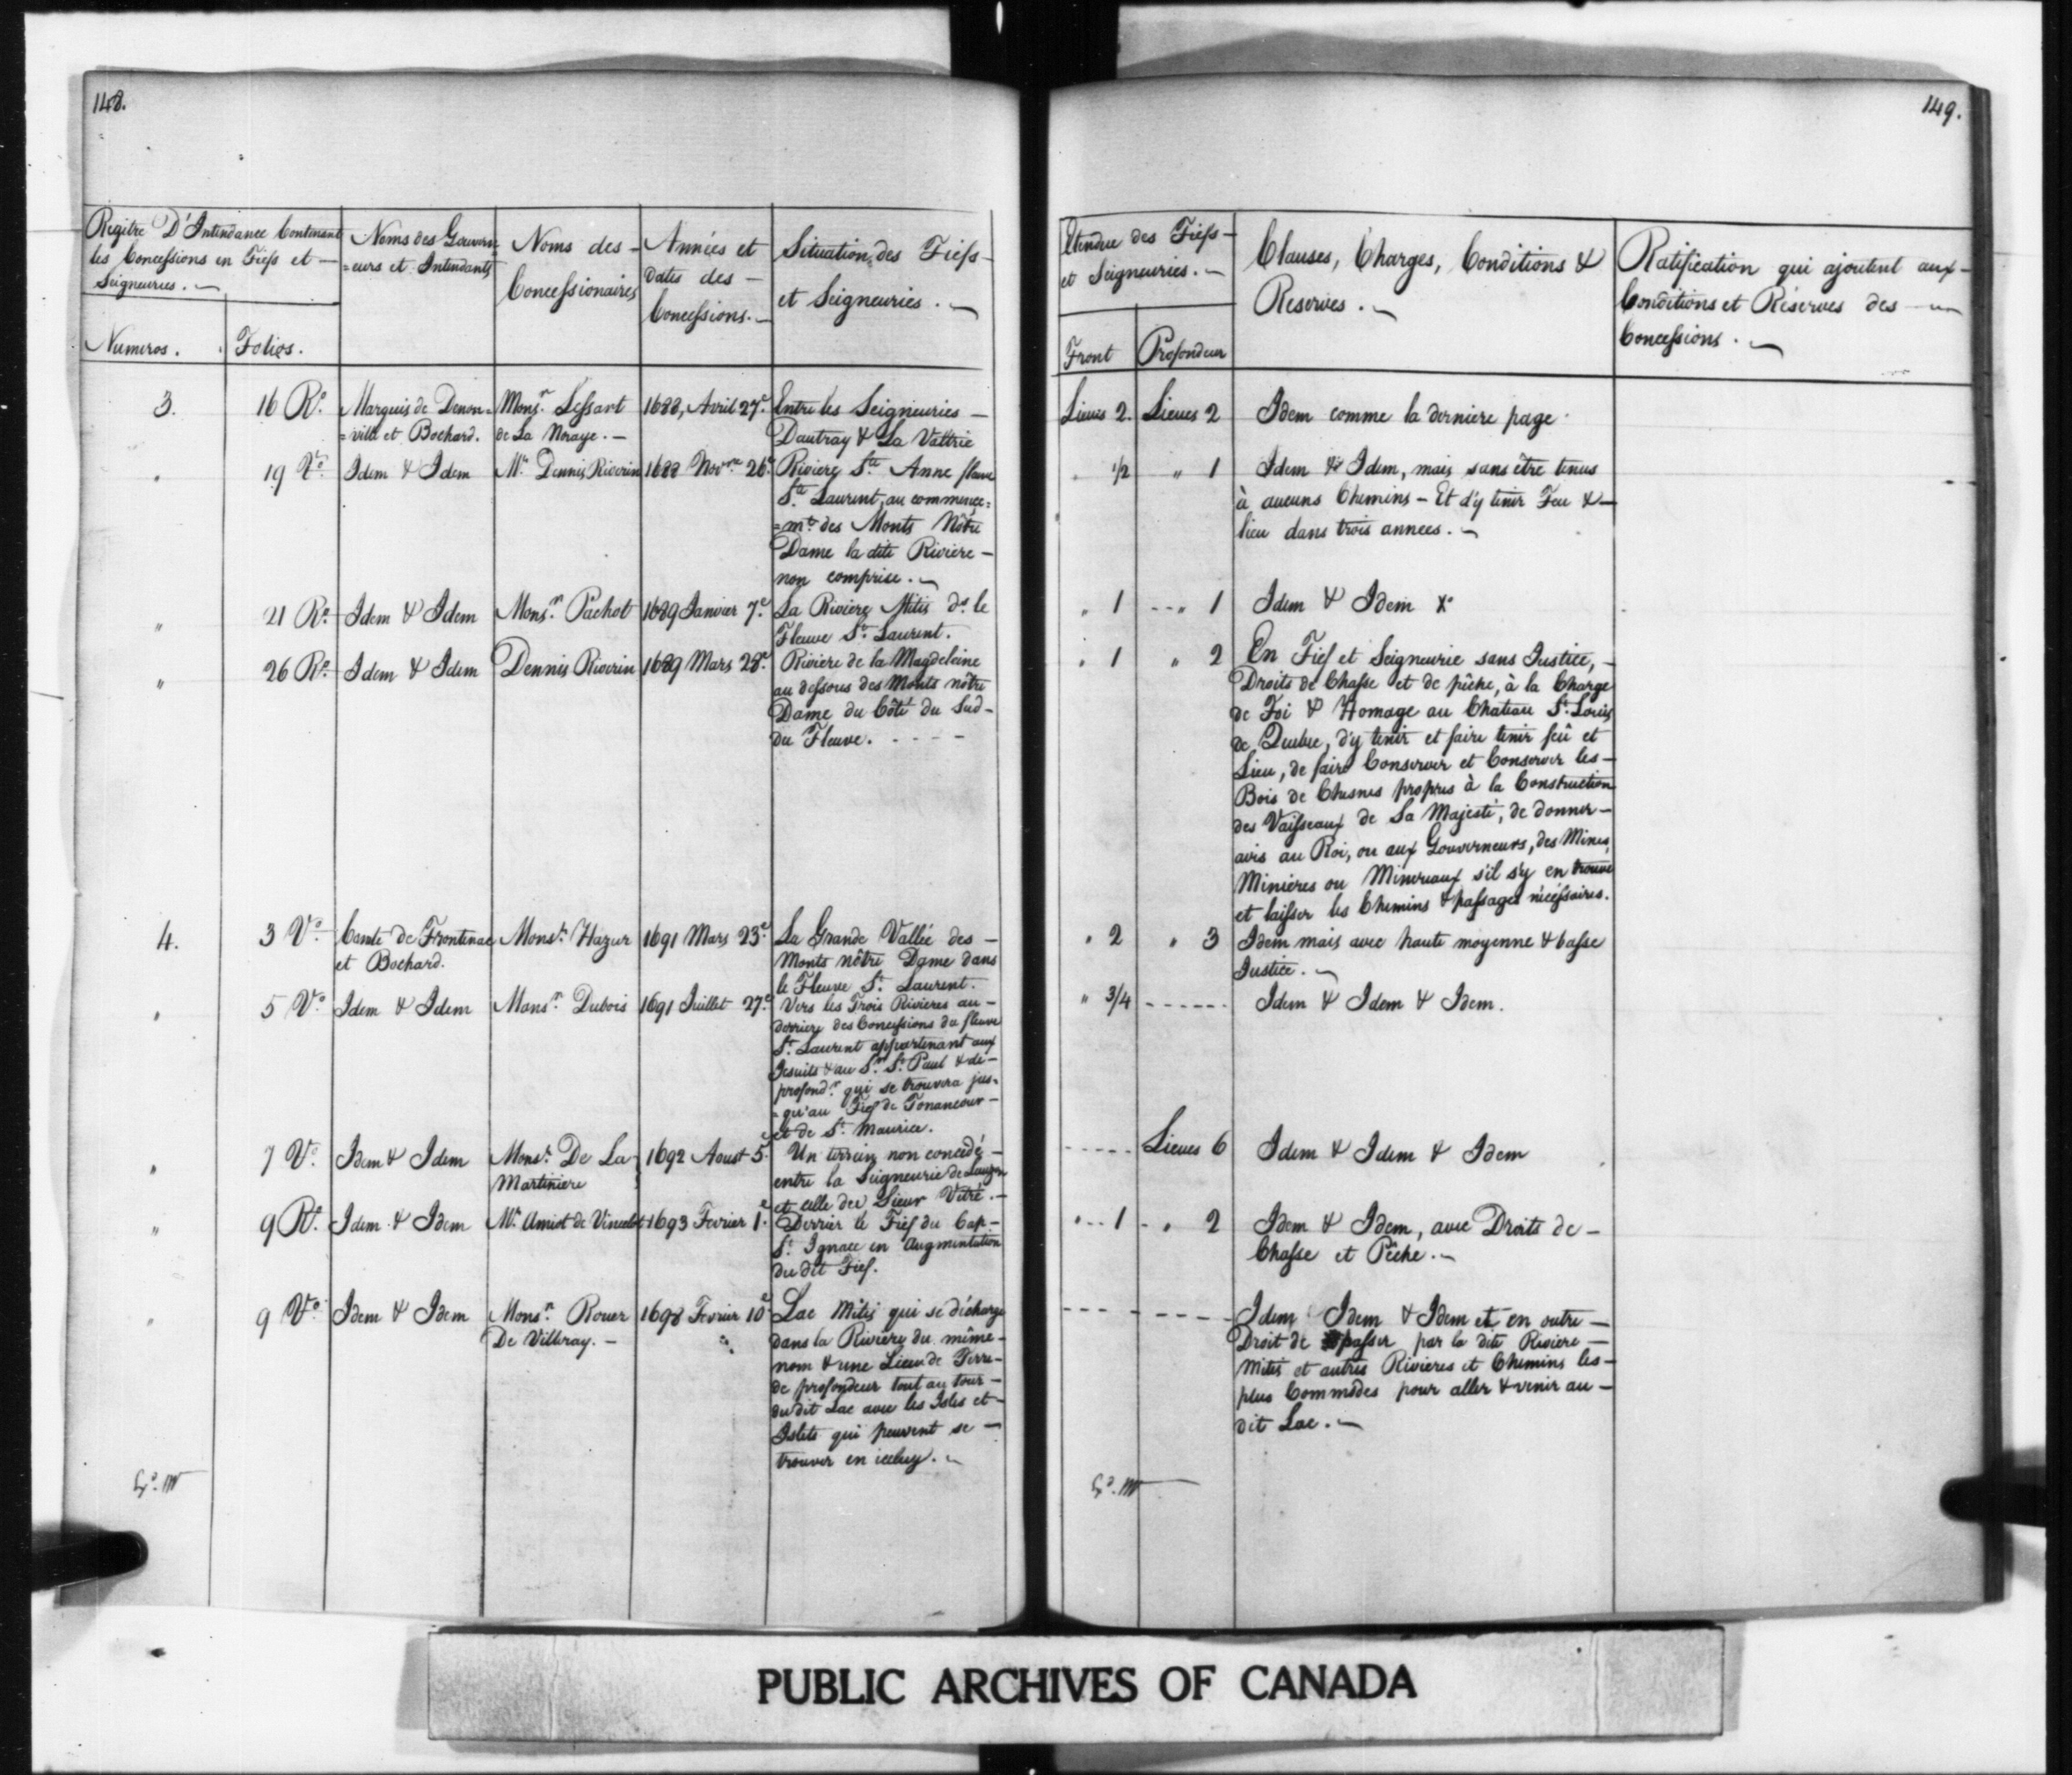 148.
Regitre D'Intendance Contenant
les Concessions en Fiefs et —
Seigneuries. —
Numeros.
Folios.
Noms des Gouvern=
=eurs et Intendants
Noms des -
Concessionaires
Années et
dates des —
Concessions. —
Situation des Fiefs —
et Seigneuries. —
3. 16 Ro. Marquis de Denon= Monsr. Lessart 1688, Avril 27e. Entre les Seigneuries —
=ville et Bochard. de La Noraye. — Dautray & La Valtrie
" 19 Vo. Idem & Idem Mr. Dennis Riverin 1688 Novre 26e. Riviere Ste Anne fleuve
St. Laurent, au commence=
=mt. des Monts Nôtre
Dame la dite Riviere —
non comprise. —
" 21 Ro. Idem & Idem Monsr. Pachot 1689 Janvier 7e. La Riviere Mitis ds. le
Fleuve St. Laurent.
" 26 Ro. Idem & Idem Dennis Riverin 1689 Mars 28e. Riviere de la Magdeleine
au dessous des Monts nôtre
Dame du Côté du Sud —
du Fleuve. - - - -
4. 3 Vo. Comte de Frontenac Monsr. Hazur 1691 Mars 23e. La Grande Vallée des —
et Bochard. Monts nôtre Dame dans
le Fleuve St. Laurent.
" 5 Vo. Idem & Idem Monsr. Dubois 1691 Juillet 27e. Vers les Trois Rivieres au —
derriere des Concessions du fleuve
St. Laurent appartenant aux
Jesuits & au Sr. St. Paul & de —
profondr. qui se trouvera jus=
=qu'au Fief de Tonancour —
et de St. Maurice.
" 7 Vo. Idem & Idem Monsr. De La 1692 Aoust 5e. Un terrein non concedé —
Martiniere entre la Seigneurie de Lauzon
et celle du Sieur Vitré. —
" 9 Ro. Idem & Idem Mr. Amiot de Vincelot 1693 Fevrier 1e. Derrier le Fief du Cap —
St. Ignace en augmentation
du dit Fief.
" 9 Vo. Idem & Idem Monsr. Rouer 1698 Fevrier 10e. Lac Mitis qui se décharge
De Villeray. — dans la Riviere du même —
nom & une Lieue de Terre —
de profondeur tout au tour —
du dit Lac avec les Isles et —
Islets qui peuvent se —
trouver en iceluy. —
149.
Etendue des Fiefs —
et Seigneuries. —
Front
Profondeur
Clauses, Charges, Conditions &
Reserves. —
Ratification qui ajoutent aux —
Conditions et Réserves des —
Concessions. —
Lieues 2. Lieues 2 Idem comme la derniere page.
" 1/2 " 1 Idem & Idem, mais sans être tenus
à aucuns Chemins — Et d'y tenir Feu & —
lieu dans trois annees. —
" 1 - - " 1 Idem & Idem &c
" 1 " 2 En Fief et Seigneurie sans Justice, —
Droits de Chasse et de pêche, à la Charge
de Foi & Homage au Chateau St. Louis
de Quebec, d'y tenir et faire tenir feû et
Lieu, de faire Conserver et Conserver les —
Bois de Chesnes propres à la Construction
des Vaisseaux de Sa Majesté, de donner —
avis au Roi, ou aux Gouverneurs, des Mines,
Minieres ou Mineraux s'il s'y en trouve
et laisser les Chemins & passages nécessaires.
" 2 " 3 Idem mais avec haute moyenne & basse
Justice. —
" 3/4 - - - - - - Idem & Idem & Idem.
- - - - - Lieues 6 Idem & Idem & Idem
" - - 1 - " 2 Idem & Idem, avec Droits de —
Chasse et Pêche. —
- - - - - - - - Idem Idem & Idem et en outre —
Droit de passer par la dite Riviere —
Mitis et autres Rivieres et Chemins les —
plus Commodes pour aller & venir au —
dit Lac. —
PUBLIC ARCHIVES OF CANADA